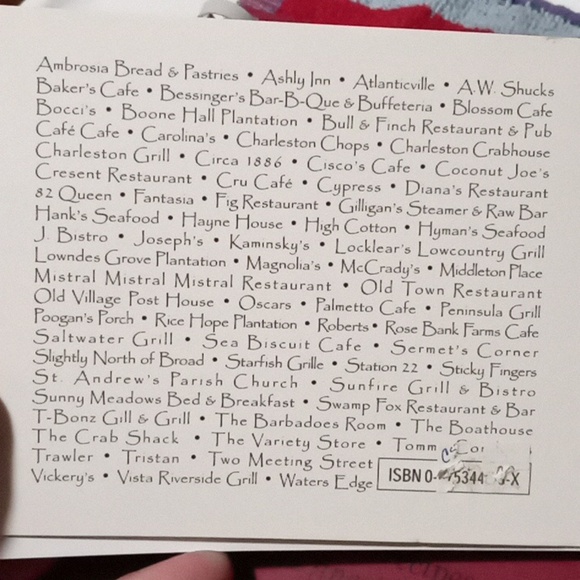 Ambrosia Bread & Pastries • Ashly Inn • Atlanticville • A.W. Shucks
Baker's Cafe • Bessinger's Bar-B-Que & Buffeteria • Blossom Cafe
Bocci's • Boone Hall Plantation • Bull & Finch Restaurant & Pub
Café Cafe • Carolina's • Charleston Chops • Charleston Crabhouse
Charleston Grill • Circa 1886 • Cisco's Cafe • Coconut Joe's
Cresent Restaurant • Cru Café • Cypress • Diana's Restaurant
82 Queen • Fantasia • Fig Restaurant • Gilligan's Steamer & Raw Bar
Hank's Seafood • Hayne House • High Cotton • Hyman's Seafood
J. Bistro • Joseph's • Kaminsky's • Locklear's Lowcountry Grill
Lowndes Grove Plantation • Magnolia's • McCrady's • Middleton Place
Mistral Mistral Mistral Restaurant • Old Town Restaurant
Old Village Post House • Oscars • Palmetto Cafe • Peninsula Grill
Poogan's Porch • Rice Hope Plantation • Roberts • Rose Bank Farms Cafe
Saltwater Grill • Sea Biscuit Cafe • Sermet's Corner
Slightly North of Broad • Starfish Grille • Station 22 • Sticky Fingers
St. Andrew's Parish Church • Sunfire Grill & Bistro
Sunny Meadows Bed & Breakfast • Swamp Fox Restaurant & Bar
T-Bonz Gill & Grill • The Barbadoes Room • The Boathouse
The Crab Shack • The Variety Store •
Trawler • Tristan • Two Meeting Street
Vickery's • Vista Riverside Grill • Waters Edge
ISBN 0-